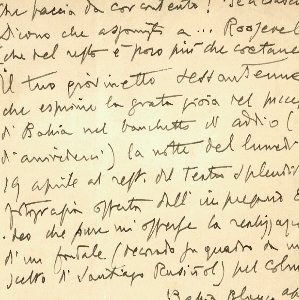 che faccia da cor contento! Se a ciascu
Dicono che assomiti a... Roosevel
(che del resto è poco più che coetane
Il tuo giovinetto sessantenne
che esprime la grata gioia nel picc
di Bahia nel banchetto di addio (
d'arrivederci) la notte del lunedì
19 aprile al rest. del Teatro Splendid
fotografia offerta dall'
deo che pure mi offerse la realizzaz
d'un fondale (secondo un quadro da m
scelto di Santiago Rusiñol) pel
Bahia Blanca ap